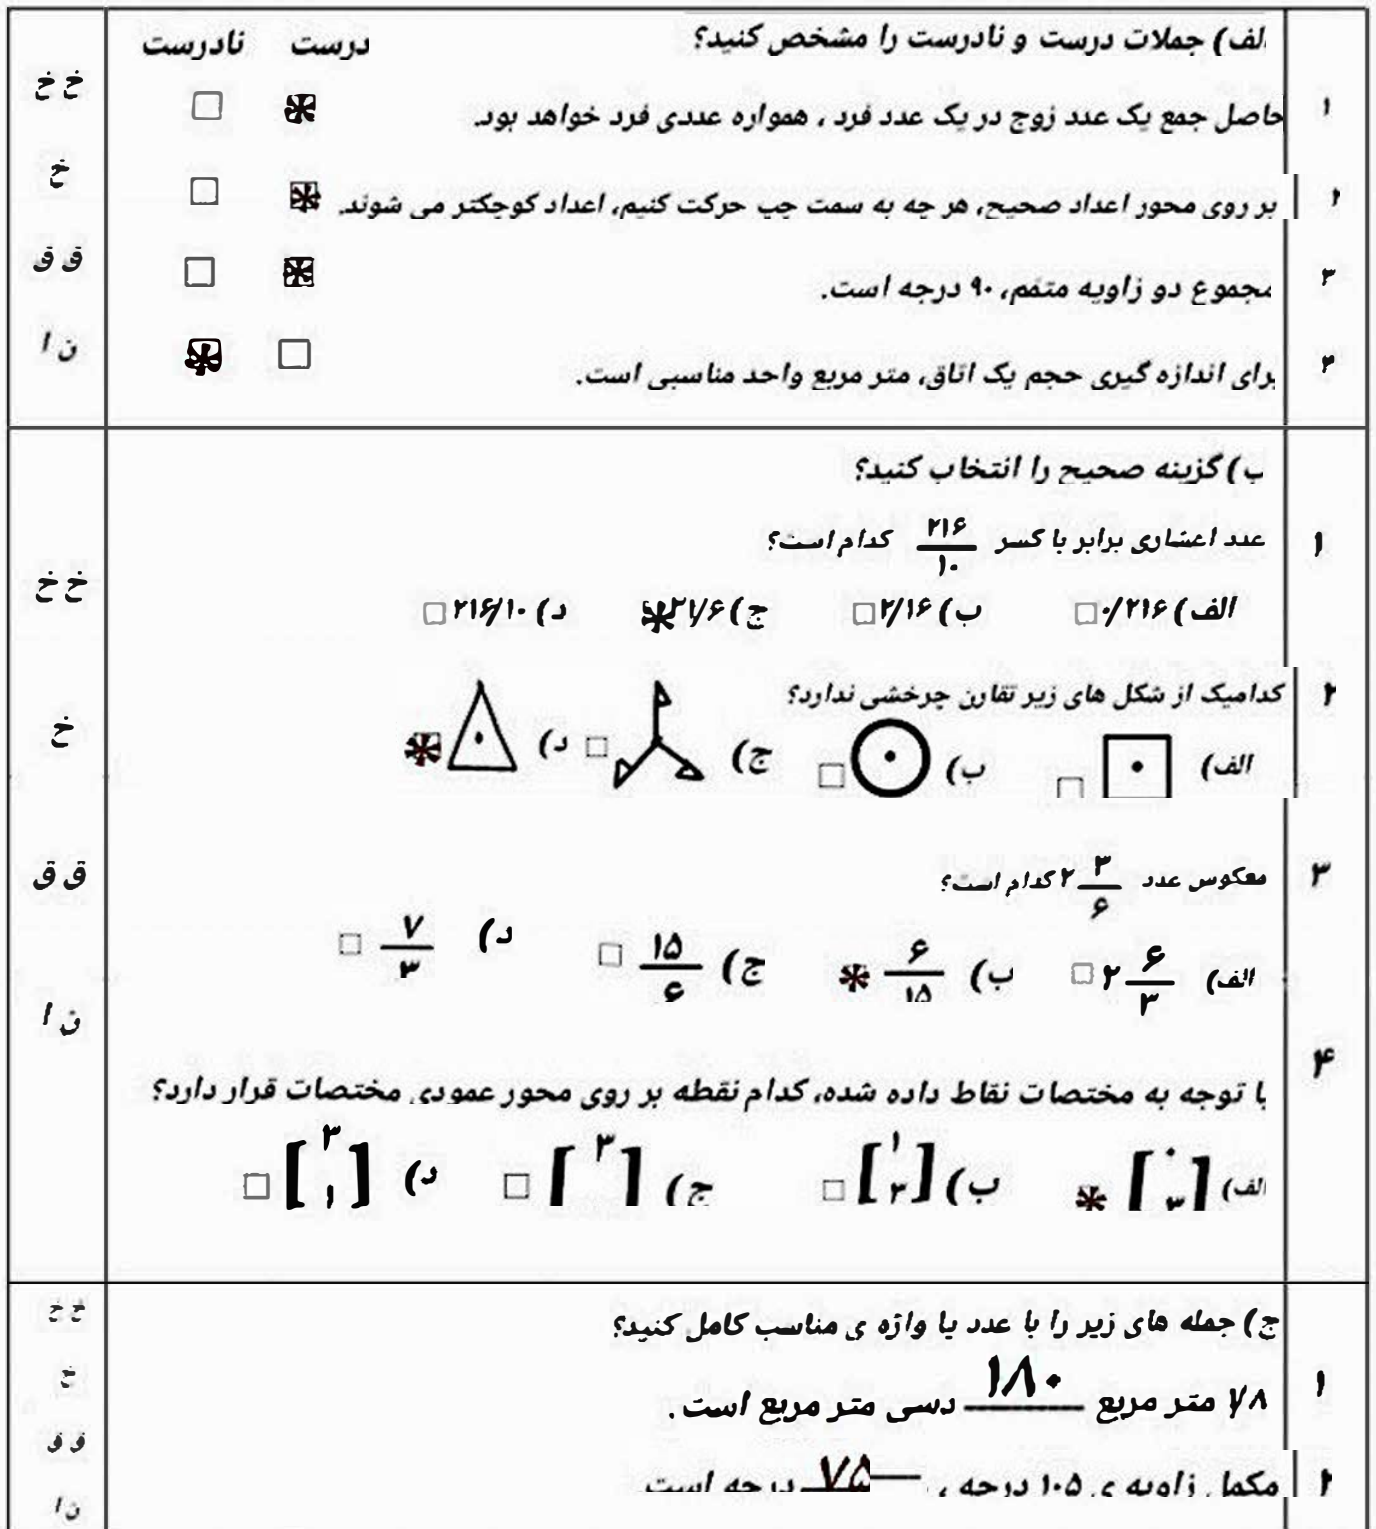 الف) جملات درست و نادرست را مشخص کنید؟ درست نادرست
۱ حاصل جمع یک عدد زوج در یک عدد فرد ، همواره عددی فرد خواهد بود. خ خ
۲ بر روی محور اعداد صحیح، هر چه به سمت چپ حرکت کنیم، اعداد کوچکتر می شوند. خ
۳ مجموع دو زاویه متمم، ۹۰ درجه است. ق ق
۴ برای اندازه گیری حجم یک اتاق، متر مربع واحد مناسبی است. ن ا
ب) گزینه صحیح را انتخاب کنید؟
۱ عدد اعشاری برابر با کسر ۲۱۶/۱۰ کدام است؟
الف) ۰/۲۱۶ ب) ۲/۱۶ ج) ۲۱/۶ د) ۲۱۶/۱۰ خ خ
۲ کدامیک از شکل های زیر تقارن چرخشی ندارد؟
الف) ب) ج) د) خ
۳ معکوس عدد ۲ ۳/۶ کدام است؟ ق ق
الف) ۲ ۶/۳ ب) ۶/۱۵ ج) ۱۵/۶ د) ۷/۳
ن ا
۴ با توجه به مختصات نقاط داده شده، کدام نقطه بر روی محور عمودی مختصات قرار دارد؟
الف) [۰ ۳] ب) [۱ ۳] ج) [۳ ] د) [۳ ۱]
ج) جمله های زیر را با عدد یا واژه ی مناسب کامل کنید؟ خ خ
۱ ۱/۸ متر مربع ۱۸۰ دسی متر مربع است. خ
ق ق
۲ مکمل زاویه ی ۱۰۵ درجه ، ۷۵ درجه است
ن ا